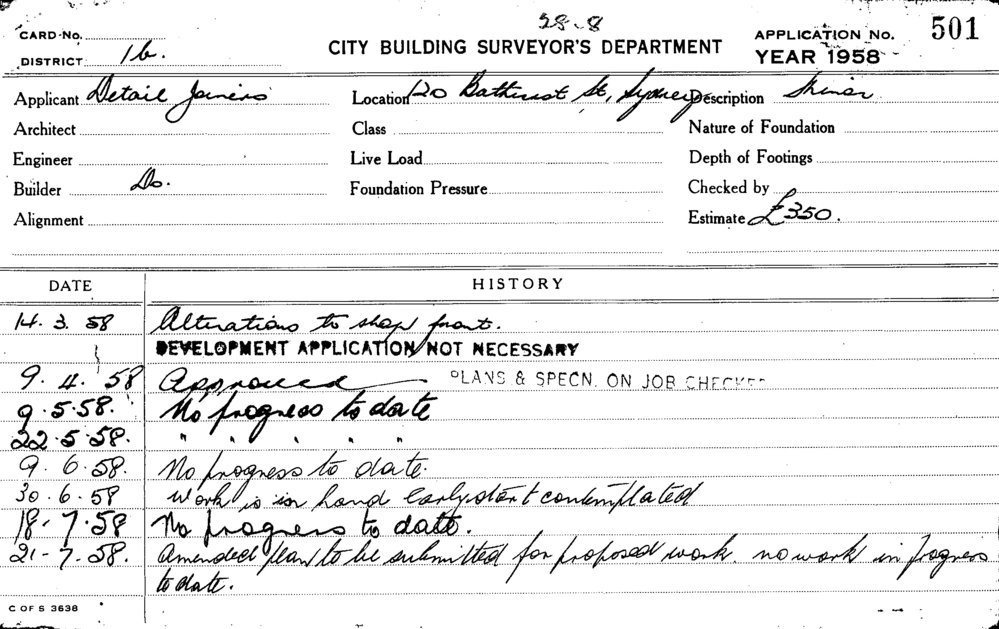 28-8
CARD No.
CITY BUILDING SURVEYOR'S DEPARTMENT
APPLICATION No. 501
DISTRICT 1b.
YEAR 1958
Applicant Detail Joiners Location 120 Bathurst St, Sydney Description Minor
Architect Class Nature of Foundation
Engineer Live Load Depth of Footings
Builder Do. Foundation Pressure Checked by
Alignment Estimate £350.
DATE HISTORY
14. 3. 58 Alterations to shop front.
DEVELOPMENT APPLICATION NOT NECESSARY
9. 4. 58 Approved PLANS & SPECN. ON JOB CHECKED
9.5.58. No progress to date
22.5.58. " " " " "
9.6.58. No progress to date.
30.6.58 Work is in hand early start contemplated
18-7.58 No progress to date.
21-7.58. Amended plan to be submitted for proposed work. no work in progress
to date.
C OF S 3638